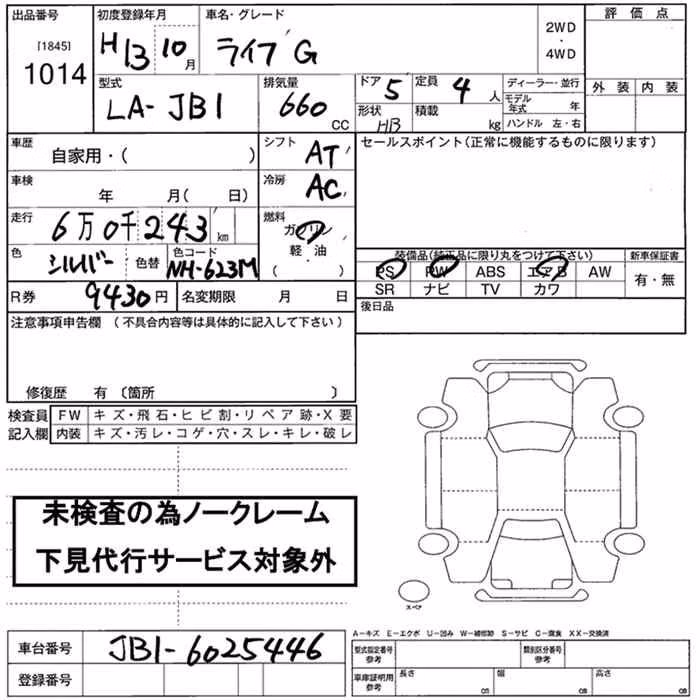 出品番号 初度登録年月 車名・グレード 評価点
[1845] H13 10月 ライフ G 2WD・4WD
1014
型式 排気量 ドア 5 定員 4人 ディーラー・並行 外装 内装
LA-JB1 660CC 形状 HB 積載 kg モデル年式 年
ハンドル 左・右
車歴 自家用・( ) シフト AT セールスポイント(正常に機能するものに限ります)
車検 年 月( 日) 冷房 AC
走行 6万0千243km 燃料 ガソリン
軽油
( )
色 シルバー 色替 色コード NH-623M 装備品(純正品に限り丸をつけて下さい) 新車保証書
PS PW ABS エアB AW 有・無
SR ナビ TV カワ
R券 9430円 名変期限 月 日 後日品
注意事項申告欄 (不具合内容等は具体的に記入して下さい)
修復歴 有 〔箇所 〕
検査員 FW キズ・飛石・ヒビ割・リペア跡・X要
記入欄 内装 キズ・汚レ・コゲ・穴・スレ・キレ・破レ
未検査の為ノークレーム
下見代行サービス対象外
スペア
A-キズ E-エクボ U-凹み W-補修跡 S-サビ C-腐食 XX-交換済
車台番号 JB1-6025446 型式指定番号 参考 類別区分番号 参考
登録番号 車庫証明用 参考 長さ cm 幅 cm 高さ cm